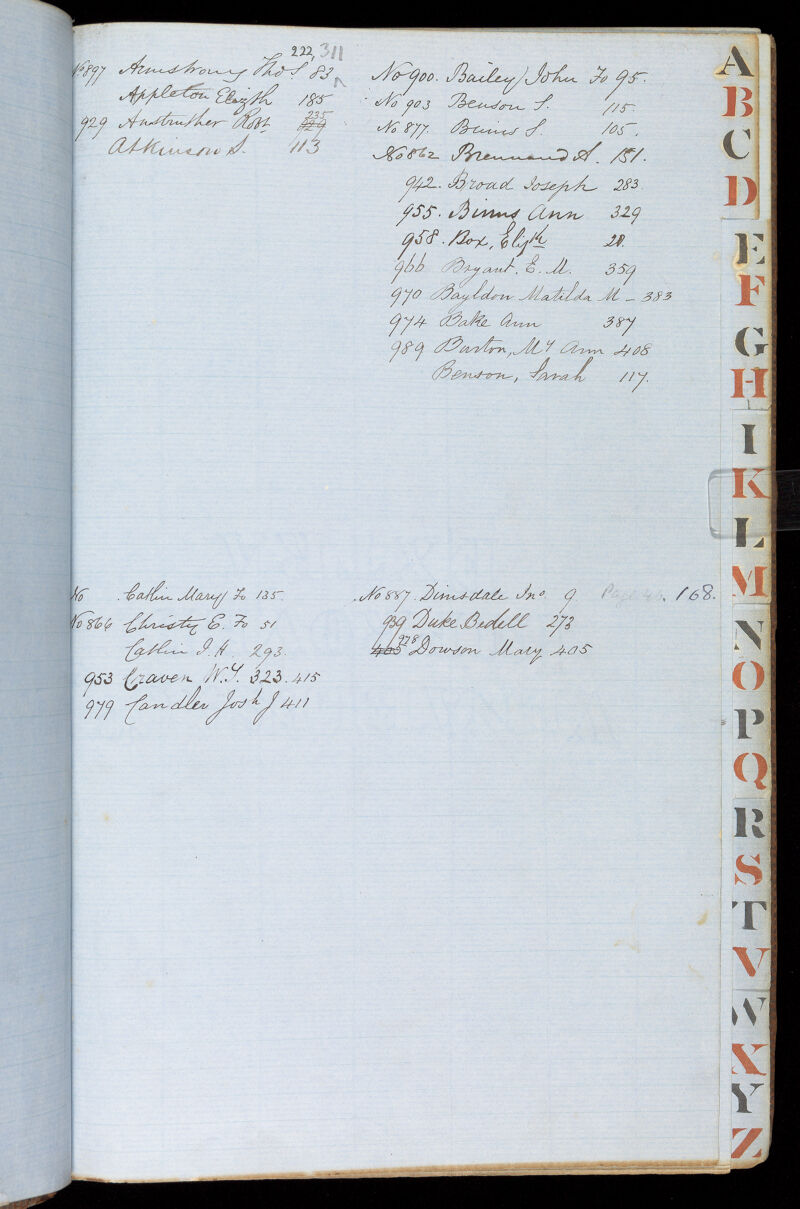 222, 311
No 897 Armstrong Thos 83
Appleton Elizth 185
235
929 Anstruther Robt 229
Atkinson S. 113
No 900. Bailey John Fo 95.
No 903 Benson S. 115.
No 877. Binns S. 105.
No 862 Brennand A. 151.
942. Broad Joseph 283.
955. Binns Ann 329
958. Box, Elizth 21.
966 Bryant. E. M. 359
970 Bayldon Matilda M - 383
974 Bake Ann 387
989 Burton, My Ann 408
Benson, Sarah 117.
No Catlin Mary Fo 135.
No 866 Christy E. Fo 51
Catlin J. H. 293.
953 Craven W.Y. 323. 415
979 Candler Josh J 411
No 887. Dimsdale Jno 9 Page 46. 168.
939 Duke Bedell 273
405 978 Dowson Mary 405
A
B
C
D
E
F
G
H
I
K
L
M
N
O
P
Q
R
S
T
V
W
X
Y
Z